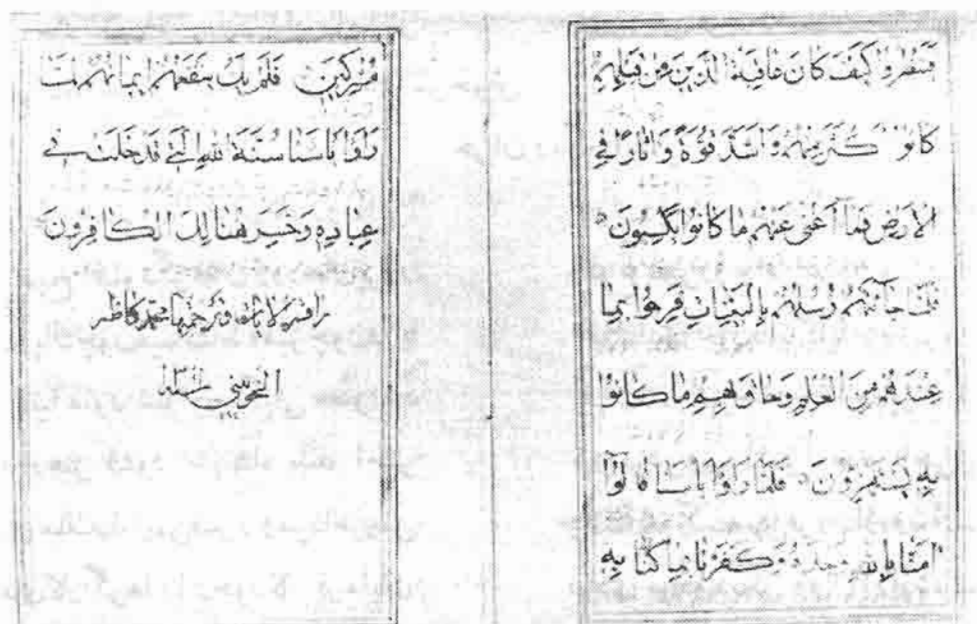 فينظروا كيف كان عاقبة الذين من قبلهم
كانوا أكثر منهم وأشد قوة وآثارا في
الأرض فما أغنى عنهم ما كانوا يكسبون
فلما جآءتهم رسلهم بالبينات فرحوا بما
عندهم من العلم وحاق بهم ما كانوا
به يستهزؤن فلما رأوا بأسنا قالوا
امنا بالله وحده وكفرنا بما كنا به
مشركين فلم يك ينفعهم ايمانهم لما
رأوا بأسنا سنة الله التي قد خلت في
عباده وخسر هنالك الكافرون
محمد كاظم